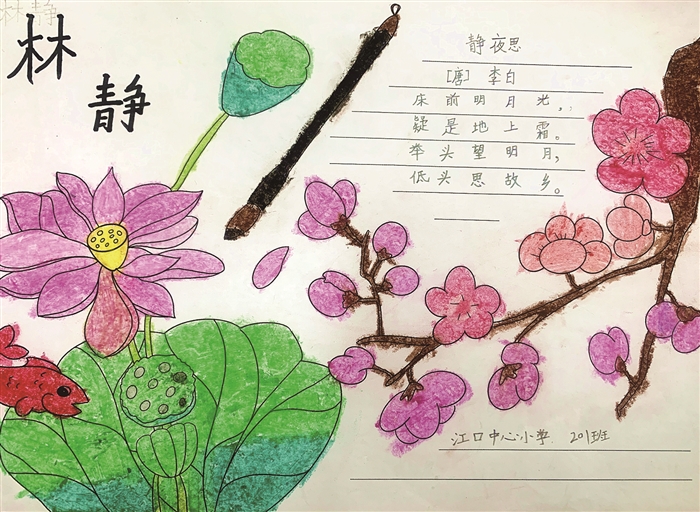 林静
静夜思
[唐] 李白
床前明月光，
疑是地上霜。
举头望明月，
低头思故乡。
江口中心小学 201班